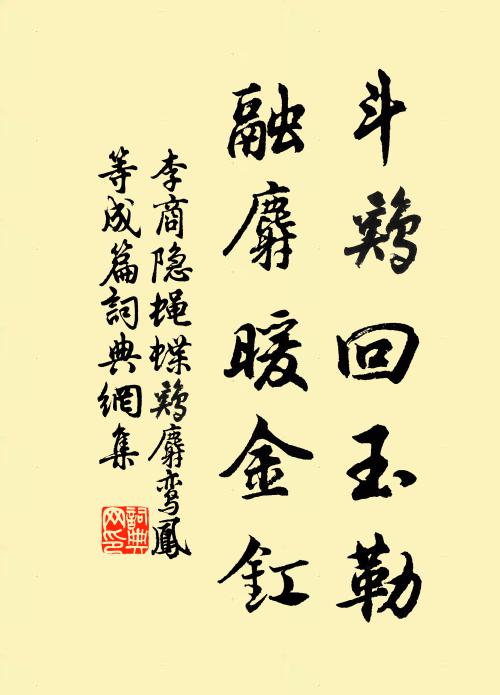 斗鶏回玉勒
融麝暖金釭
李商隐蝇蝶鶏麝鸾鳳
等成篇詞典網集
詞典
网印